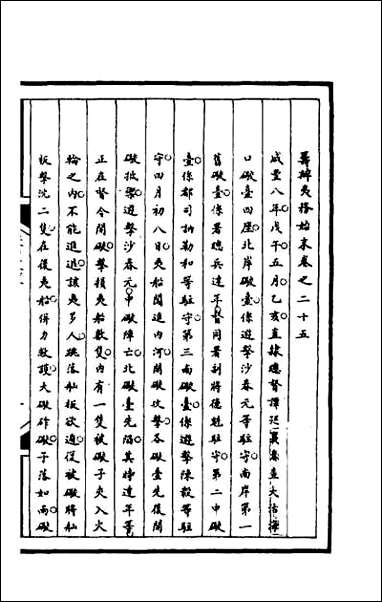 籌辦夷務始末卷之二十五
咸豐八年戊午五月乙亥直隸總督譚廷襄奏查大沽海
口礟臺四座北岸礟臺係遊擊沙春元等駐守南岸第一
舊礟臺係署總兵達年督同署副將德魁駐守第二中礟
臺係都司訥勒和等駐守第三南礟臺係遊擊陳毅等駐
守四月初八日夷船闖進內河開礟攻擊各礟臺先後開
礟抵禦遊擊沙春元中礟陣亡北礟臺先陷其時達年等
正在督令開礟擊損夷船數隻內有一隻被礟子夾入火
輪之內不能進退該夷多人跳落舢板欲過復被礟將舢
板擊沈二隻在後夷船併力救護大礟炸礟子落如雨礟